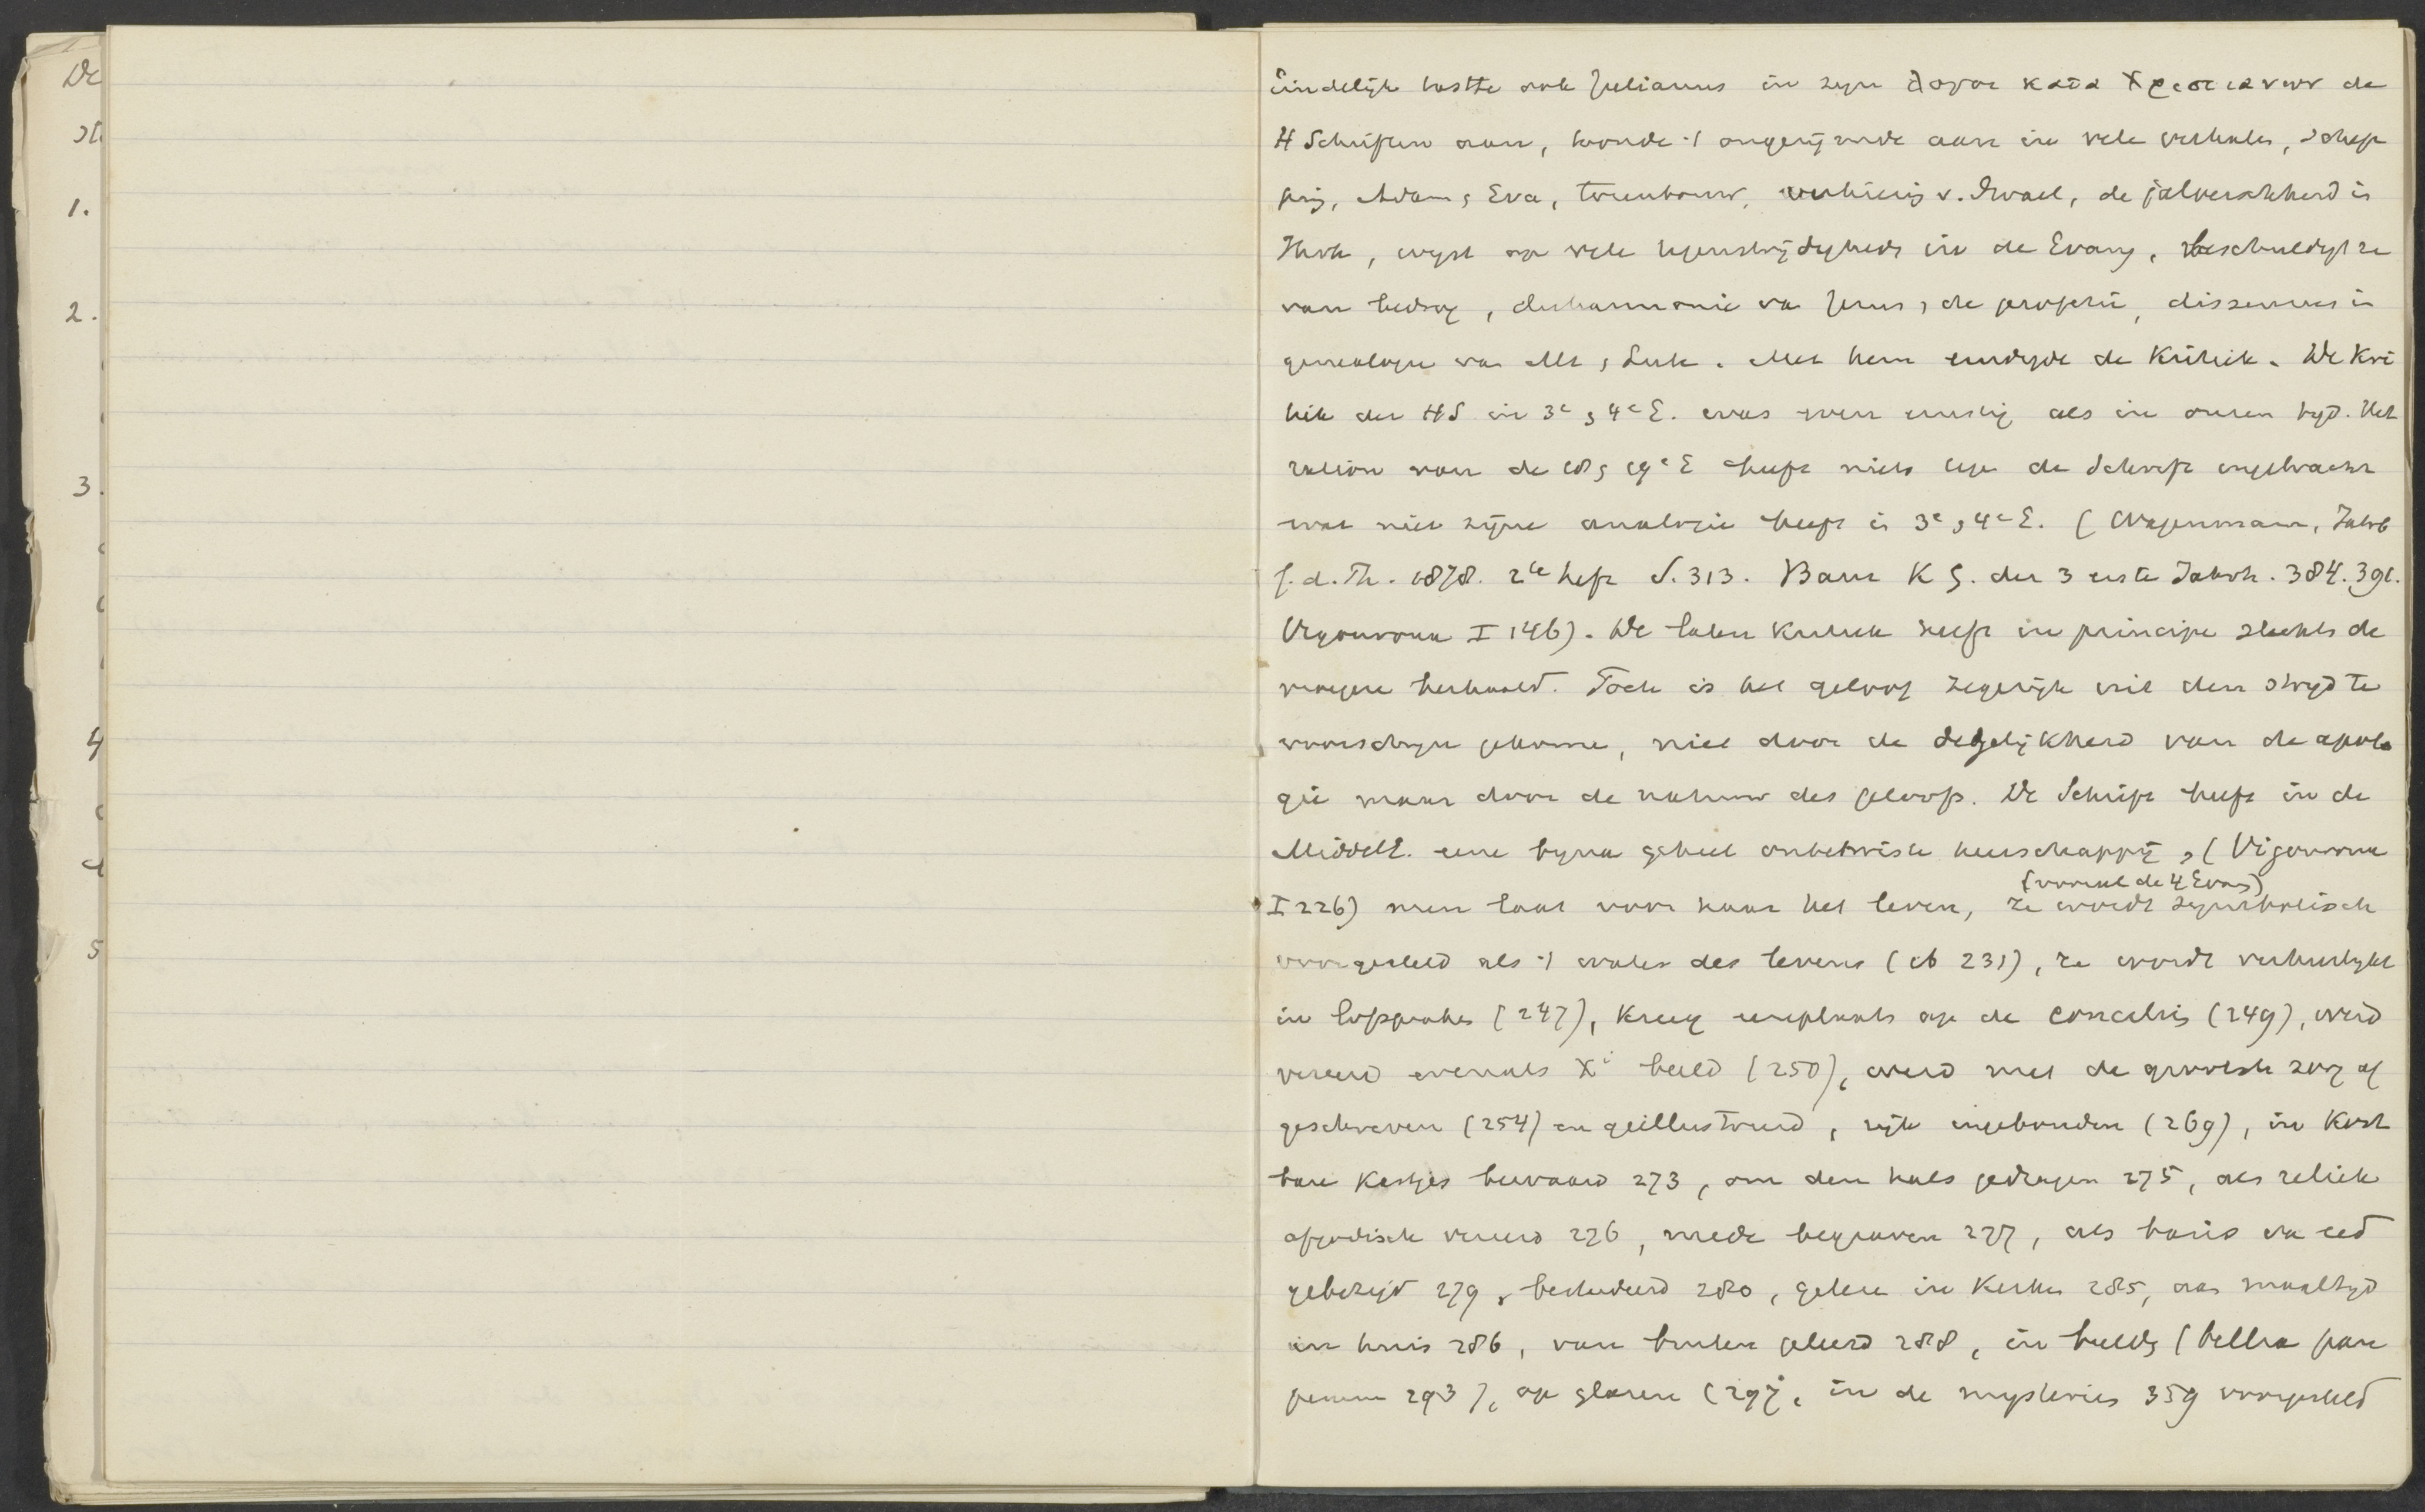 De
1.
2.
3.
4
5
Eindelijk tastte ook Julianus in zijn λογοι κατα Χριστιανων de
H Schriften aan, toonde 't ongerijmde aan in vele verhalen, schep
ping, Adam, Eva, torenbouw, verkiezing v. Israel, de
wijst op vele tegenstrijdigheden in de Evang, beschuldigt ze
van bedrog, disharmonie van Jezus, de profetie, dissensus in
genealogie van Mt, Luk. Met hem eindigde de Kritiek. De Kri
tiek der HS in 3e, 4e E. was even ernstig als in onzen tijd. Het
ration van de 18, 19e E heeft niets tegen de Schrift ingebracht
wat niet zijne analogie heeft in 3e, 4e E. (Wagenmann, Jahrb
f. d. Th. 1878. 2te heft S. 313. Baur K G. der 3 erste Jahrh. 384. 391.
Vigouroux I 146). De latere Kritiek heeft in principe slechts de
vroegere herhaald. Toch is het geloof zegerijk uit den strijd te
voorschijn gekomen, niet door de degelijkheid van de apolo
gie maar door de natuur des geloofs. De Schrift heeft in de
MiddelE. eene bijna geheel onbetwiste heerschappij, (Vigouroux
(vooral de 4 Evang)
I 226) men laat voor haar het leven, ze wordt symbolisch
voorgesteld als 't water des levens (ib 231), ze wordt verheerlijkt
in lofspraken (247), kreeg eereplaats op de conciliën (249), werd
vereerd evenals Xi beeld (250), werd met de grootste zorg af
geschreven (254) en geillustreerd, rijk ingebonden (269), in Kost
bare Kastjes bewaard 273, om den hals gedragen 275, als reliek
afgodisch vereerd 276, mede begraven 277, als basis van eed
gebezigd 279, bestudeerd 280, gelezen in Kerken 285, aan maaltijd
in huis 286, van buiten geleerd 288, in beelden (biblia pau
perum 293), op glazen (297, in de mysteries 359 voorgesteld